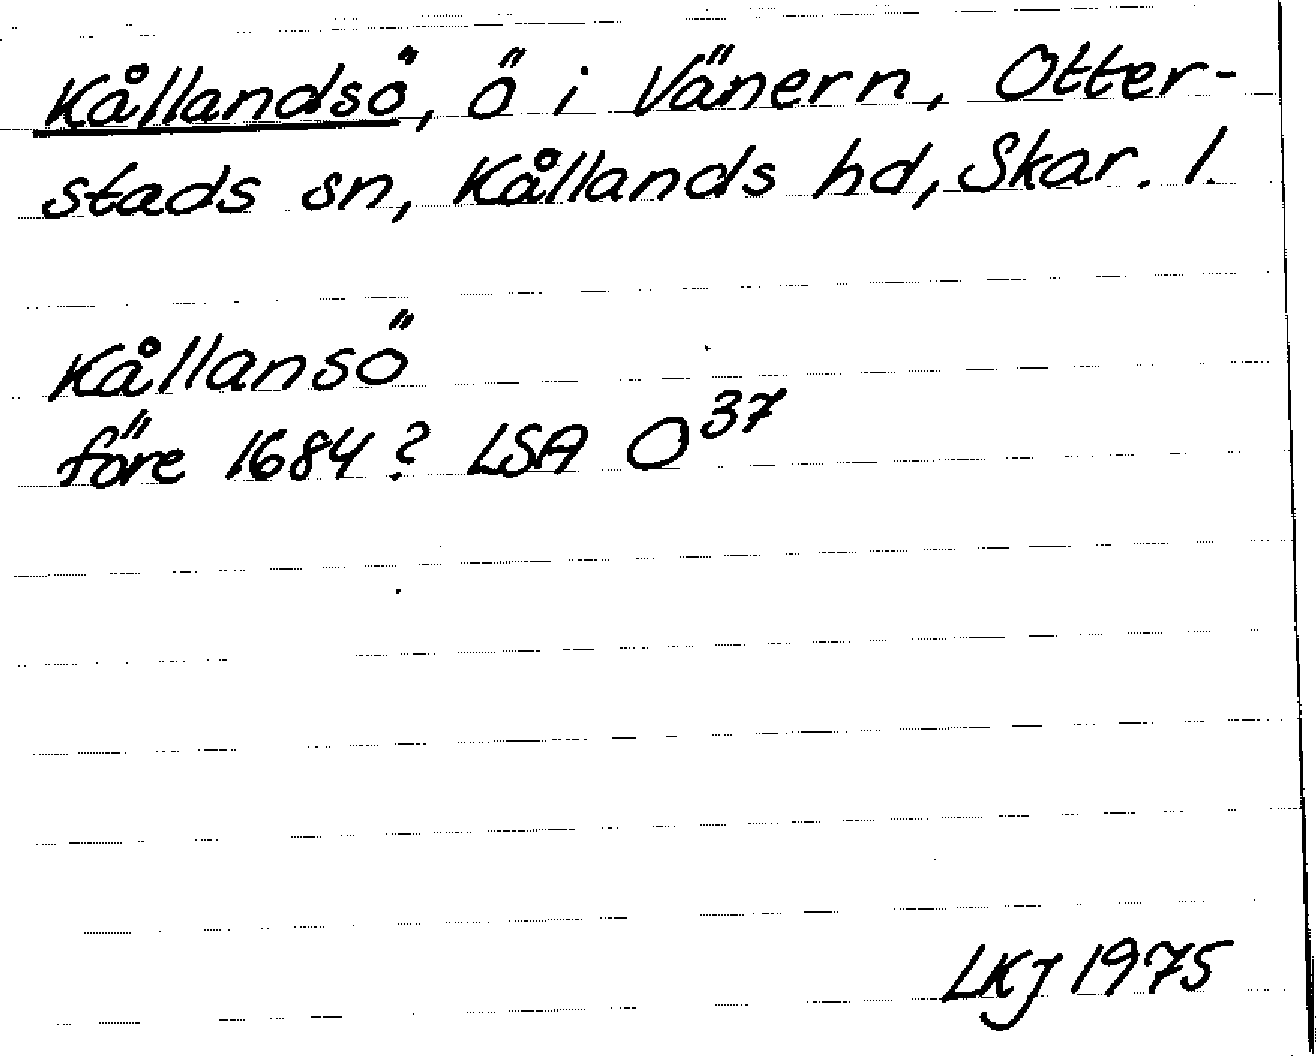 Kållandsö, ö i Vänern, Otter-
stads sn, Kållands hd, Skar. l.
Kållansö
före 1684? LSA O³⁷
LKJ 1975